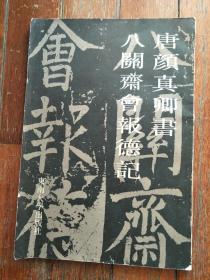 唐顏真卿書
八關齋會報德記
會報德
八關齋